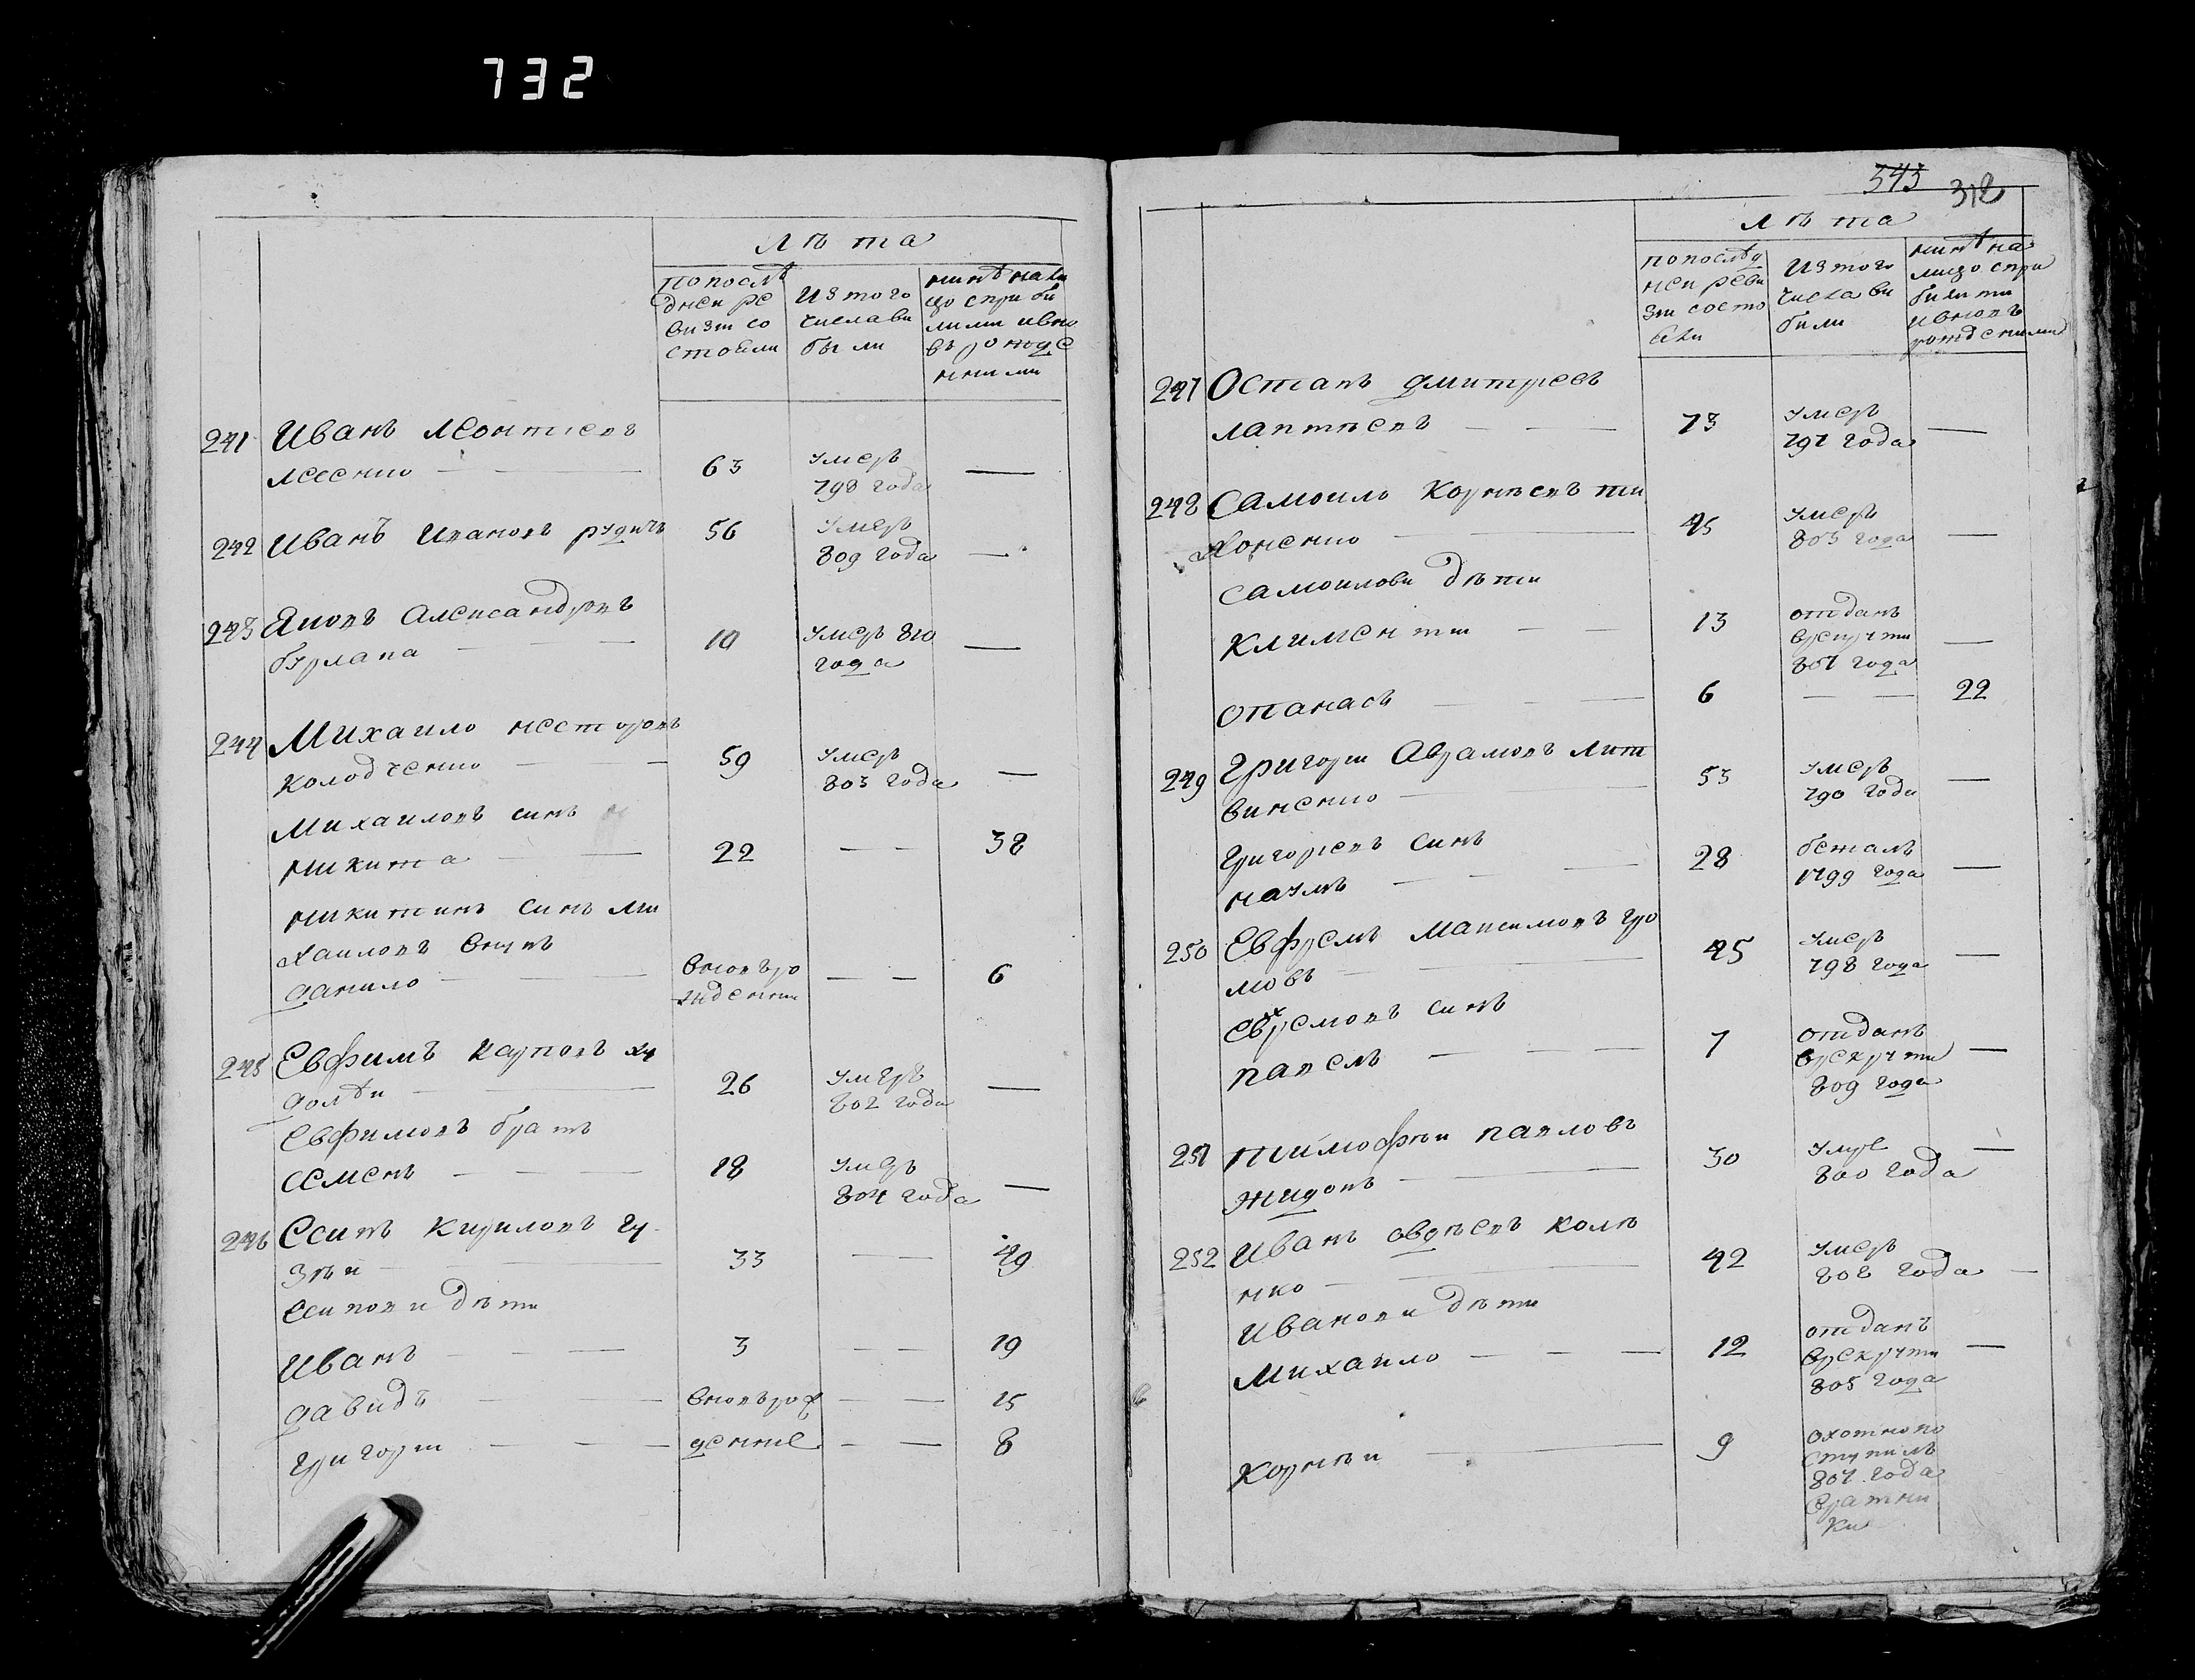 732
Лѣта
попослѣ
дней ре
визіи со
стояли
Изтого
числави
были
нинѣ нали
цо сприби
лими ивно
въ рожде
нними
241 Иванъ Леонтіевъ
лесенко — — 63 умеръ —
798 года
242 Иванъ Ивановъ рудичъ 56 умеръ —
809 года
243 Яковъ Александровъ
бурлака — — 10 умеръ 810 —
года
244 Михаило несторовъ
колодченко — — 59 умеръ —
803 года
Михаиловъ синъ
никита — — 22 — — 38
никитинъ синъ ми
хаиловъ внукъ
данило — — вновъро — — 6
жденни
245 Евфимъ Карповъ ху
долѣи — 26 умеръ —
802 года
Евфимовъ братъ
семенъ — — 18 умеръ —
804 года
246 Есипъ Кириловъ гу
зѣи — 33 — — 49
Есипови дѣти
Иванъ — — — 3 — — 19
давидъ — — вновърож — — 15
григори — — — денніе — — 8
343 312
Лѣта
попослѣд
неи реви
зіи состо
яли
Изтого
числа ви
били
нинѣ на
лицо спри
били ми
ивновъ
рожденими
247 Остапъ дмитреевъ
лаптѣевъ — — 73 умеръ —
797 года
248 Самоило Корнѣевъ ти
хоненко — — 45 умеръ —
803 года
самоилови дѣти
климентіи — — 13 отданъ
врекрути —
807 года
опанасъ — — — 6 — — 22
249 Григори Аврамовъ лит
виненко — 53 умеръ —
790 года
григориевъ синъ
наумъ — — — 28 бежалъ —
1799 года
250 Евфремъ Максимовъ гро
мовъ — — 45 умеръ —
798 года
евфремовъ синъ
павелъ — — — 7 отданъ
врекрути —
809 года
251 тимофѣи павловъ
жидовъ — — 30 умре —
800 года
252 Иванъ авдѣевъ колѣ
нко — — 42 умеръ
808 года —
Иванови дѣти
михаило — — — 12 отданъ
врекрути —
805 года
Корнѣи — — 9 охотнопо
ступилъ
807 года
вратни
ки